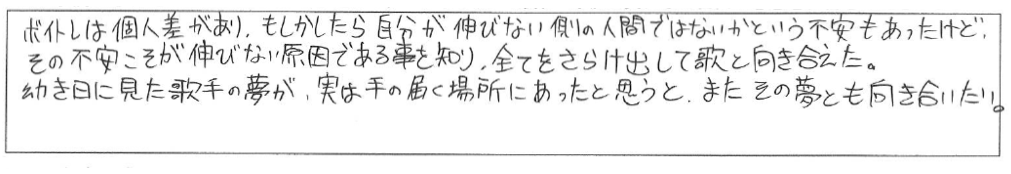 ボイトレは個人差があり、もしかしたら自分が伸びない側の人間ではないかという不安もあったけど、
その不安こそが伸びない原因である事を知り、全てをさらけ出して歌と向き合えた。
幼き日に見た歌手の夢が、実は手の届く場所にあったと思うと、またその夢とも向き合いたい。